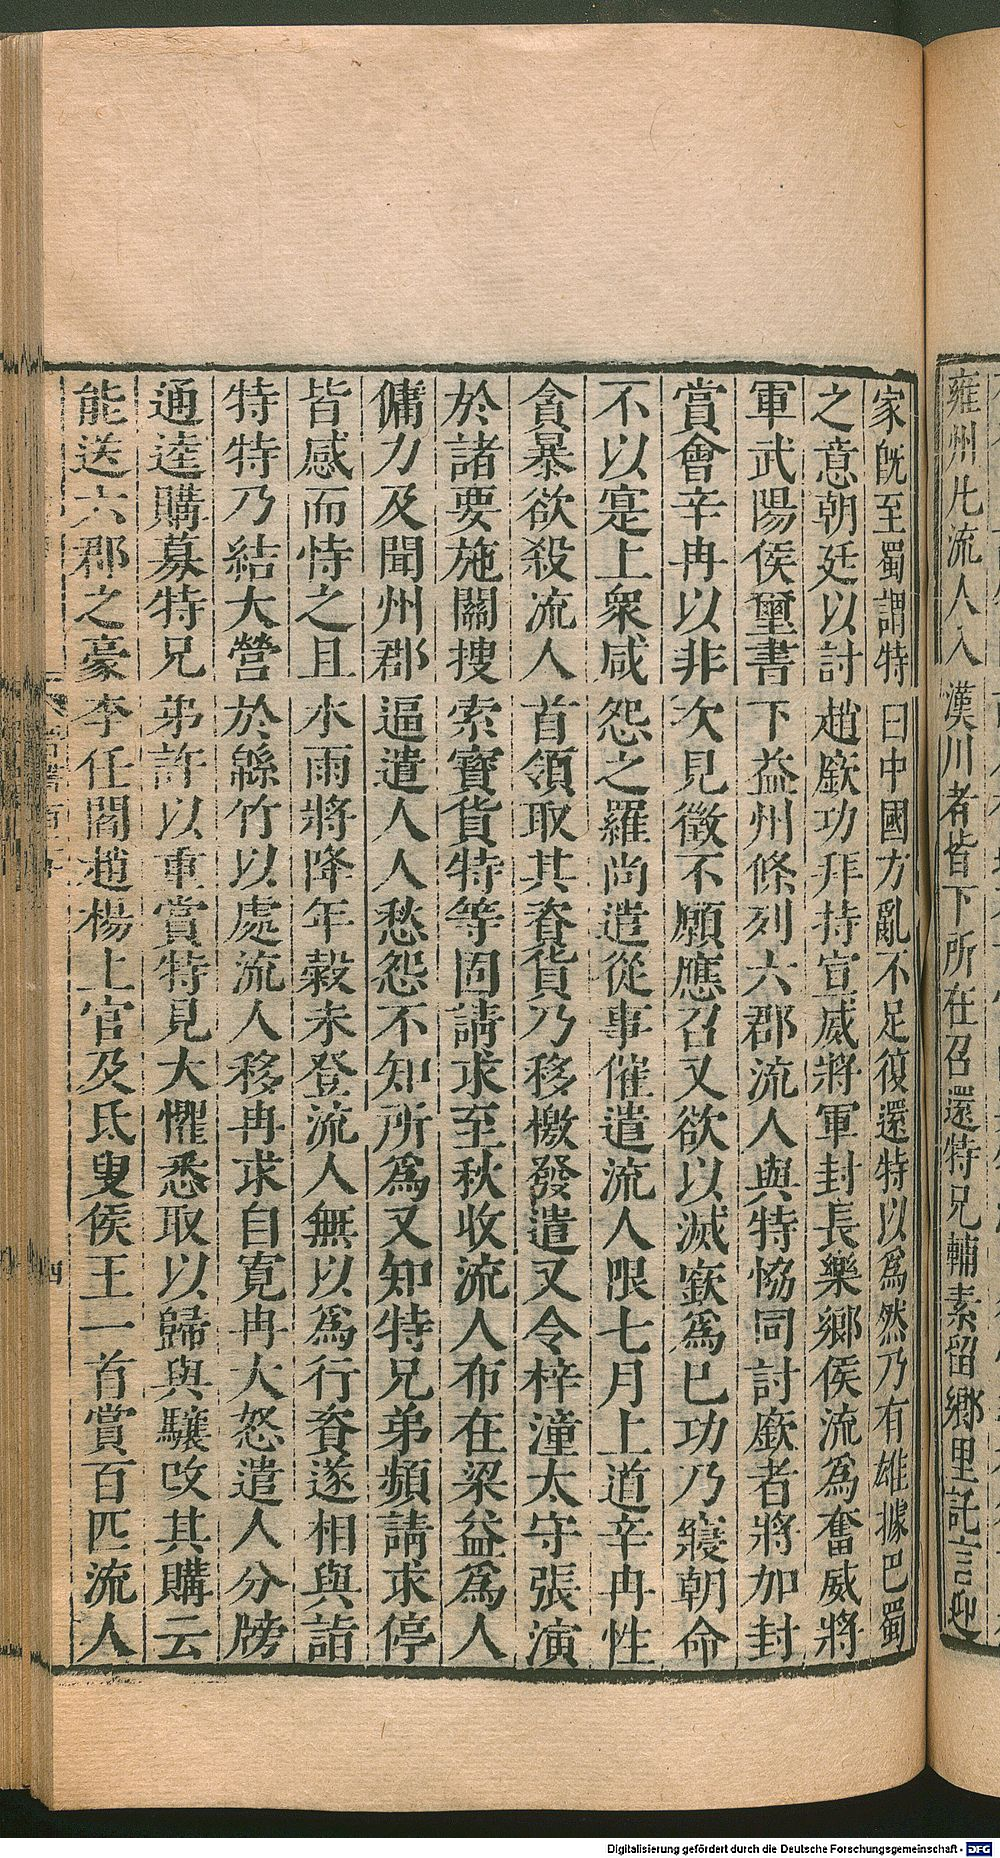 雍州凡流人入漢川者皆下所在召還特兄輔素留鄉里託言迎
家旣至蜀謂特曰中國方亂不足復還特以爲然乃有雄據巴蜀
之意朝廷以討趙廞功拜特宣威將軍封長樂鄉侯流爲奮威將
軍武陽侯璽書下益州條列六郡流人與特恊同討廞者將加封
賞會辛冉以非次見徵不願應召又欲以滅廞爲巳功乃寢朝命
不以寔上衆咸怨之羅尚遣從事催遣流人限七月上道辛冉性
貪暴欲殺流人首領取其資貨乃移檄發遣又令梓潼太守張演
於諸要施關搜索寶貨特等固請求至秋收流人布在梁益爲人
傭力及聞州郡逼遣人人愁怨不知所爲又知特兄弟頻請求停
皆感而恃之且水雨將降年穀未登流人無以爲行資遂相與詣
特特乃結大營於緜竹以處流人移冉求自寬冉大怒遣人分牓
通逵購募特兄弟許以重賞特見大懼悉取以歸與驤攺其購云
能送六郡之豪李任閻趙楊上官及氐叟侯王一首賞百匹流人
四
Digitalisierung gefördert durch die Deutsche Forschungsgemeinschaft - DFG